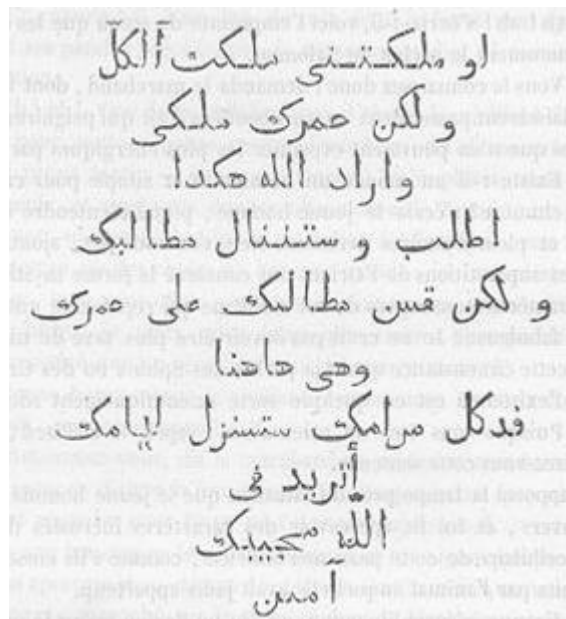 لو ملكتنى ملكت آلكل
و لكن عمرك ملكى
واراد الله هكذا
اطلب وستننال مطالبك
و لكن قس مطالبك على عمرك
وهى هاهنا
فبكل مرامك ستنزل إيامك
أتريد فى
الله مجيبك
آمين